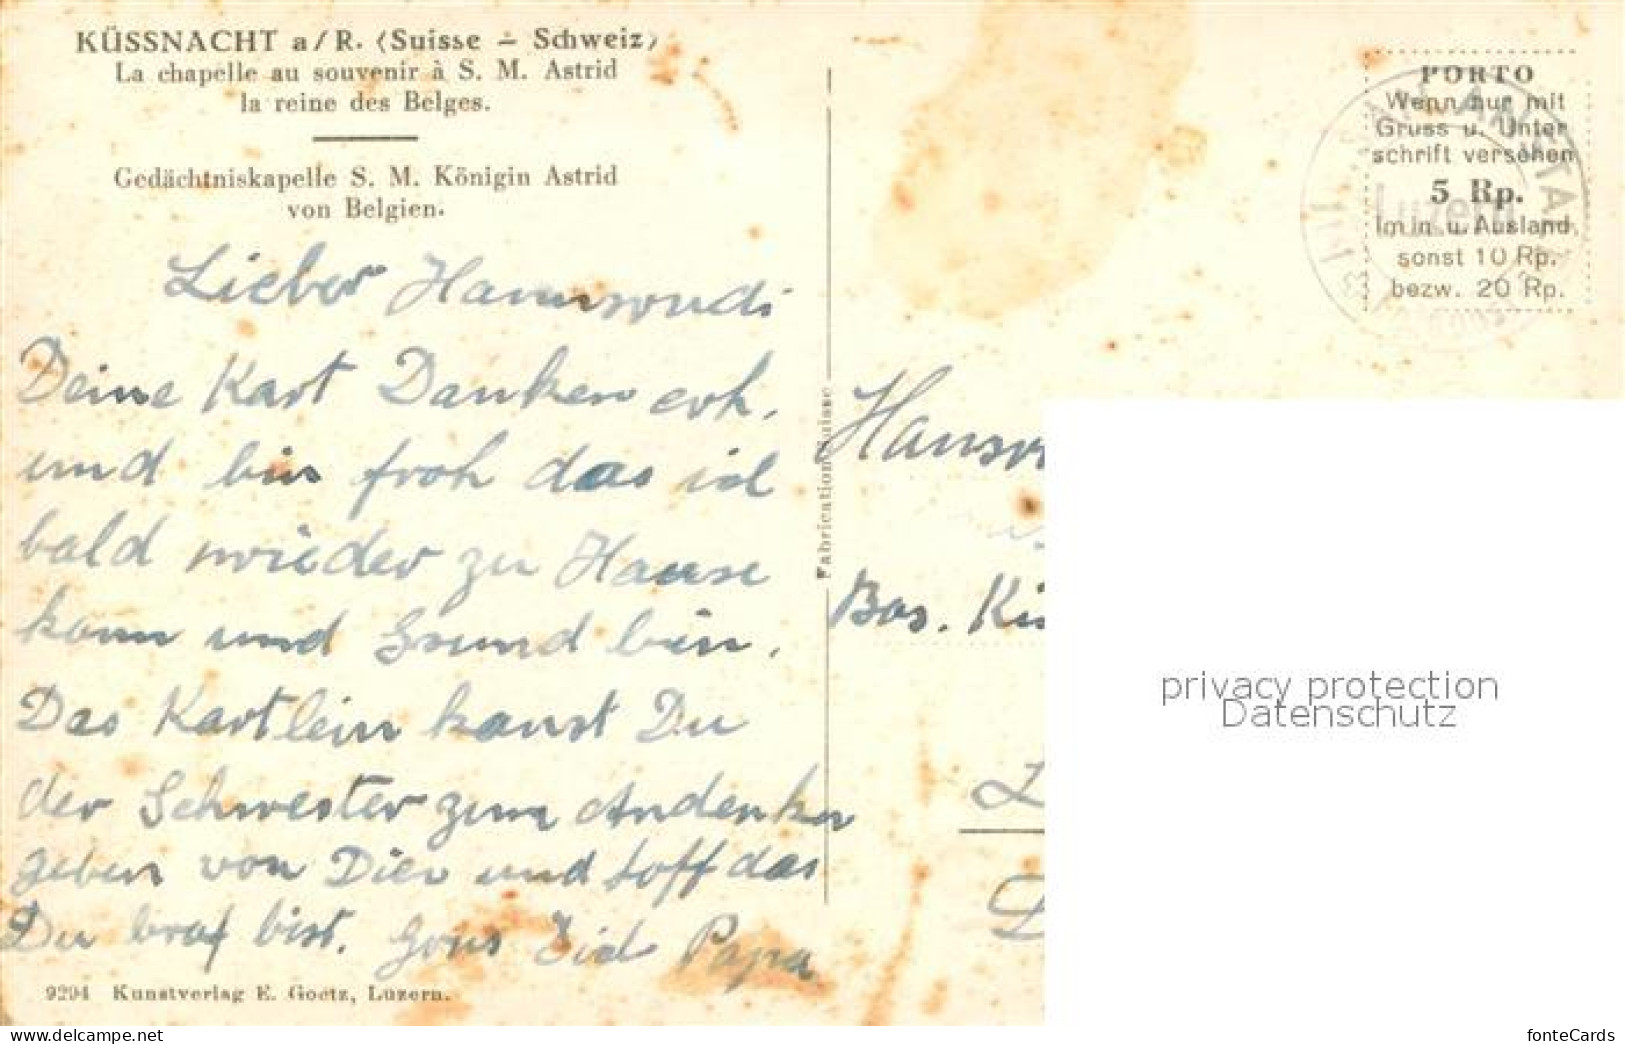 KÜSSNACHT a/R. (Suisse – Schweiz)
La chapelle au souvenir à S. M. Astrid
la reine des Belges.
Gedächtniskapelle S. M. Königin Astrid
von Belgien.
Lieber Hannsrudi
Deine Kart Danken erh.
und bin froh das ich
bald wieder zu Hause
kann und Gsund bin.
Das Kartlein kanst Du
der Schwester zum Andenken
geben von Dier und hoff das
Du braf bist. Papa
9294 Kunstverlag E. Goetz, Luzern.
Fabrication Suisse
PORTO
Wenn nur mit
Gruss u. Unter
schrift versehen
5 Rp.
Im In u. Ausland
sonst 10 Rp.
bezw. 20 Rp.
Luzern
Hansr
Bas. Ki
privacy protection
Datenschutz
fonteCards
www.delcampe.net